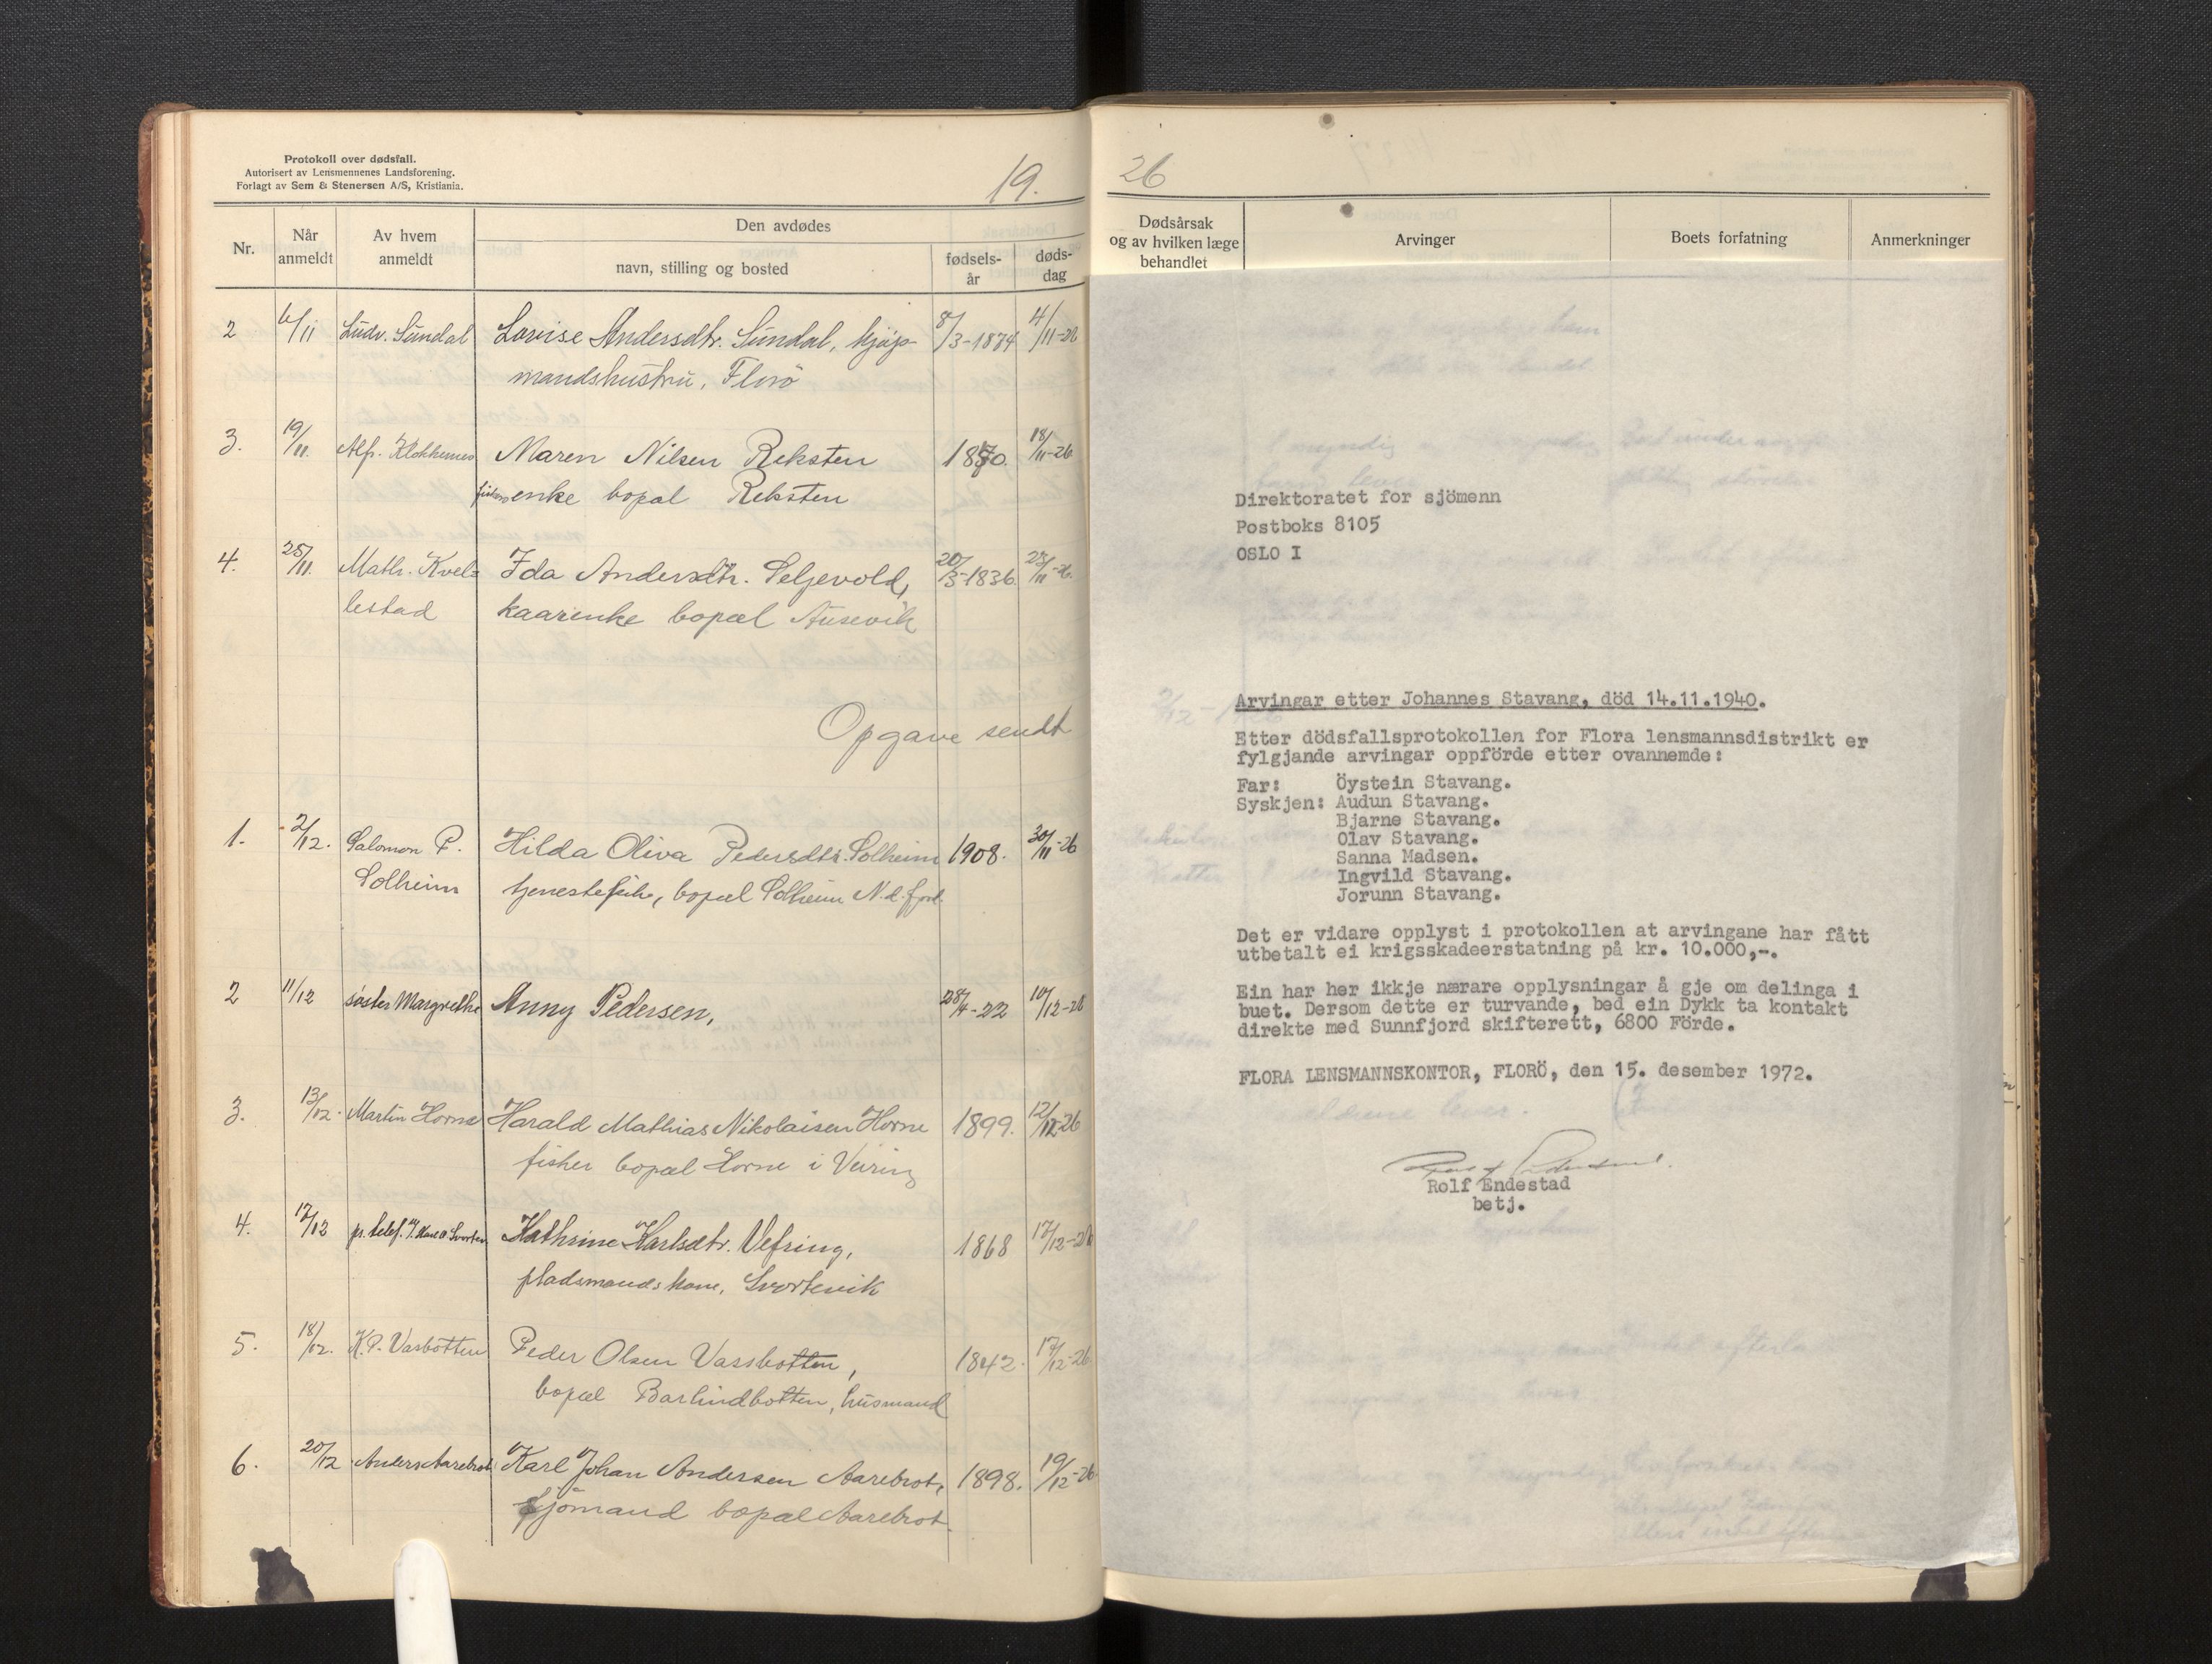 Protokoll over dødsfall.
Autorisert av Lensmennenes Landsforening.
Forlagt av Sem & Stenersen A/S, Kristiania.
19.
Nr.
Når anmeldt
Av hvem anmeldt
Den avdødes
navn, stilling og bosted
fødsels-år
døds-dag
2 6/11 Ludv. Sündal Lovise Andersdtr. Sündal, kjøp- 8/3-1874 4/11-26
mandshustru, Florö
3. 19/11. Alfr. Klokkernes Maren Nilsen Reksten 1870. 18/11-26
fiskers enke bopæl Reksten
4. 25/11. Math. Kvel= Ida Andersdtr. Seljevold, 20/3-1836. /11-26.
lestad kaarenke bopæl Ausevik
Opgave sendt
1. 2/12. Salomon P. Hilda Oliva Pedersdtr. Solheim 1908. 30/11-26
Solheim tjenestepike, bopæl Solheim N.d.fjord.
2 11/12 søster Margrethe Anny Pedersen, 28/4-22 10/12-26
3. 13/12. Martin Horne Harald Mathias Nikolaisen Horne 1899. 12/12-26
fisker bopæl Horne i Veiring
4. 17/12 pr. telef. Kathrine Karlsdtr. Vefring, 1868 17/12-26
pladsmandskone, Svortevik
5. 18/12. K.P. Vasbotten Peder Olsen Vassbotten, 1842. 17/12-26
bopæl Barlindbotten, husmand
6. 20/12 Anders Aarebrot Karl Johan Andersen Aarebrot, 1898. 19/12-26
Sjömand bopæl Aarebrot.
26
Dødsårsak og av hvilken læge behandlet
Arvinger
Boets forfatning
Anmerkninger
Direktoratet for sjömenn
Postboks 8105
OSLO I
Arvingar etter Johannes Stavang, död 14.11.1940.
Etter dödsfallsprotokollen for Flora lensmannsdistrikt er
fylgjande arvingar oppförde etter ovannemde:
Far: Öystein Stavang.
Syskjen: Audun Stavang.
Bjarne Stavang.
Olav Stavang.
Sanna Madsen.
Ingvild Stavang.
Jorunn Stavang.
Det er vidare opplyst i protokollen at arvingane har fått
utbetalt ei krigsskadeerstatning på kr. 10.000,-.
Ein har her ikkje nærare opplysningar å gje om delinga i
buet. Dersom dette er turvande, bed ein Dykk ta kontakt
direkte med Sunnfjord skifterett, 6800 Förde.
FLORA LENSMANNSKONTOR, FLORÖ, den 15. desember 1972.
Rolf Endestad
betj.